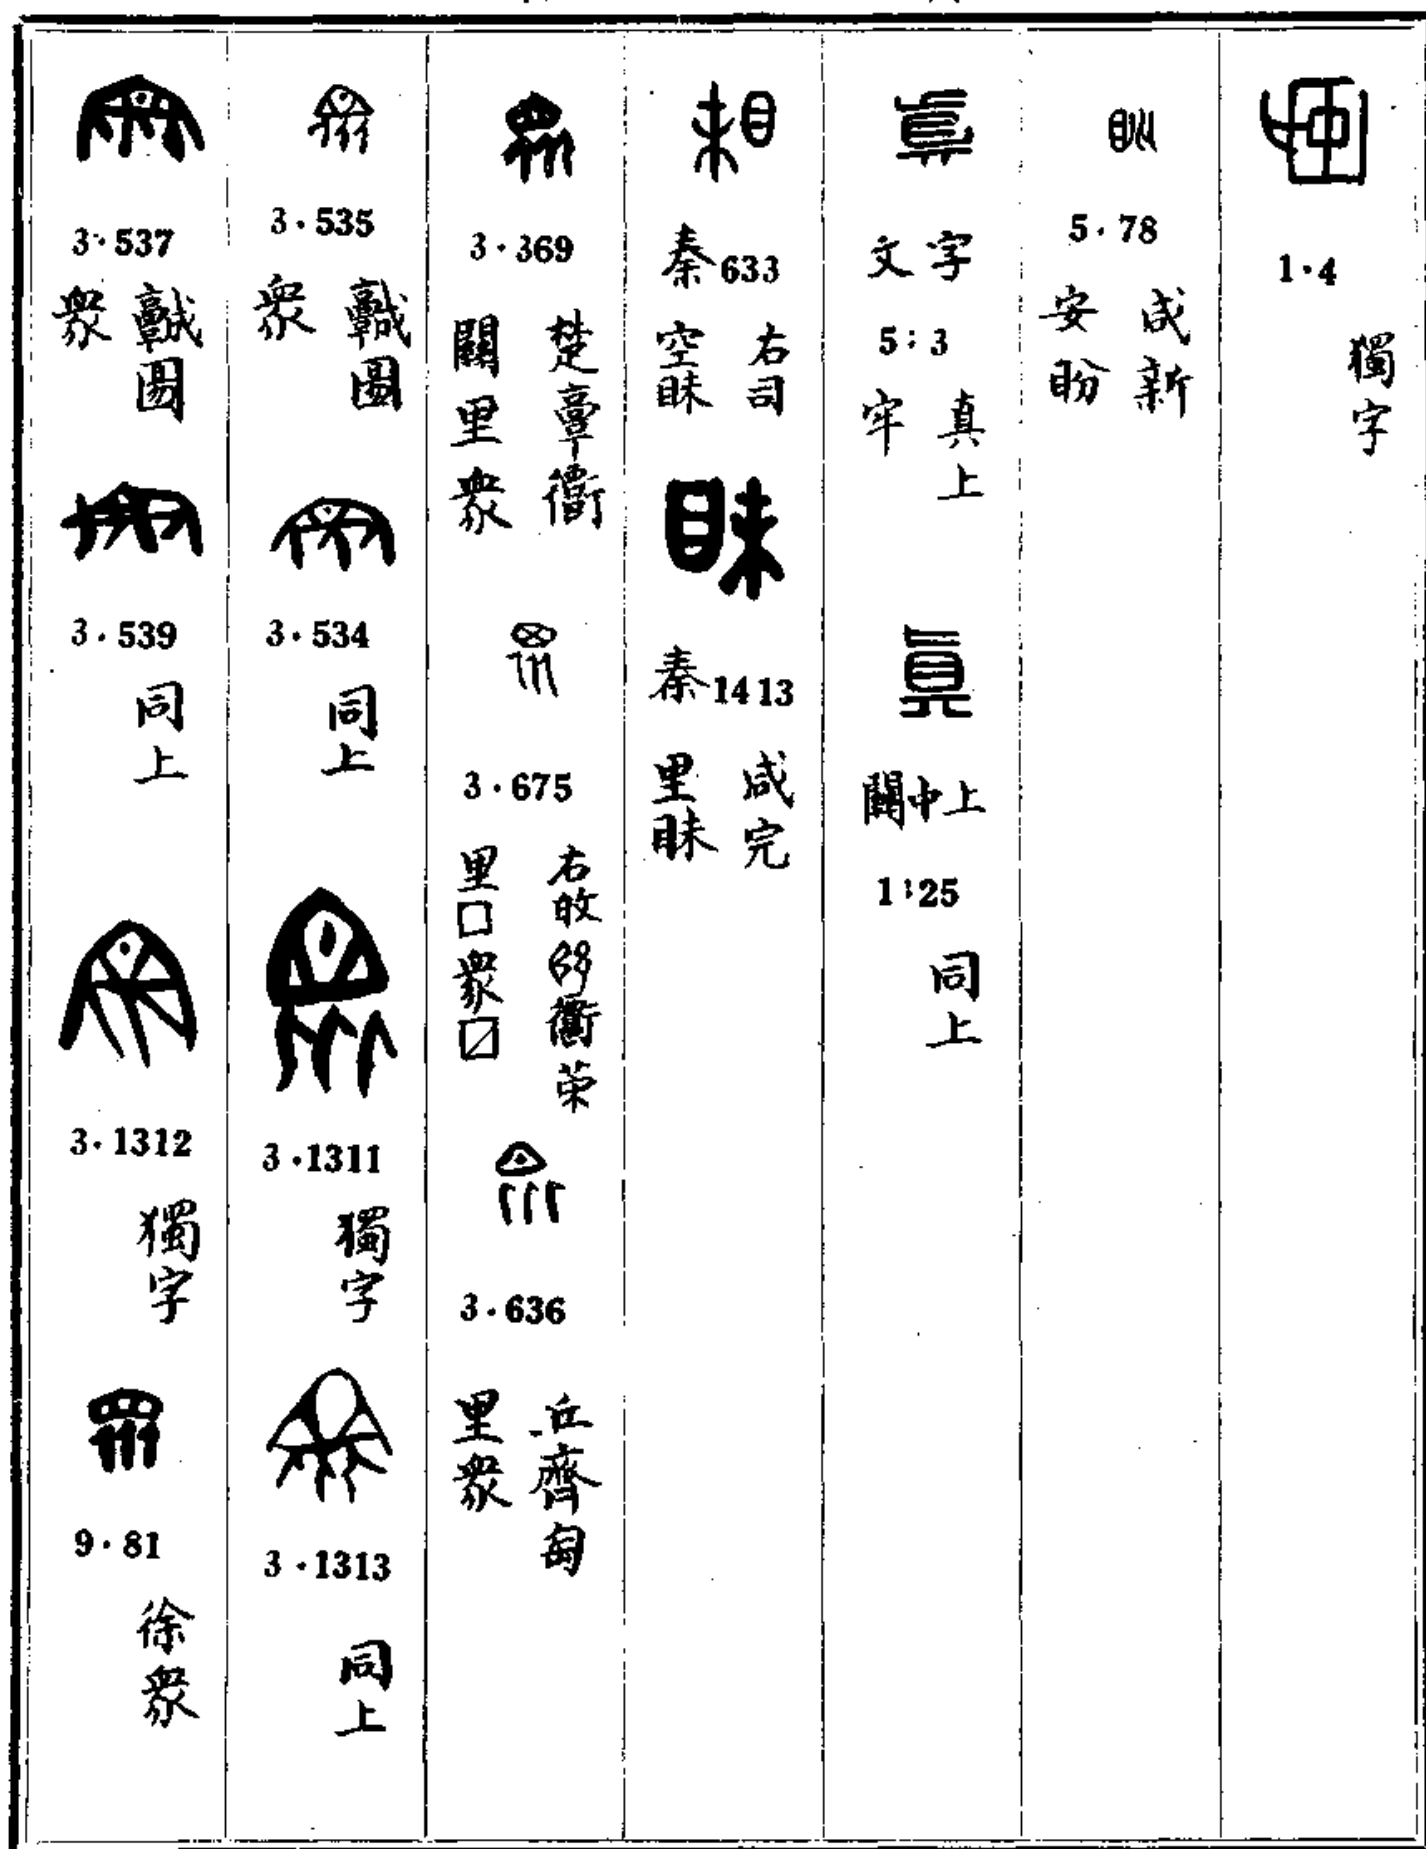 1·4
獨字
5·78
咸新
安盼
文字
5:3
真上
牢
關中上
1:25
同上
秦633
右司
空眜
秦1413
咸完
里眜
3·369
楚
關里衆
3·675
右
里□衆〼
3·636
丘齊匋
里衆
3·535
衆
3·534
同上
3·1311
獨字
3·1313
同上
3·537
衆
3·539
同上
3·1312
獨字
9·81
徐衆